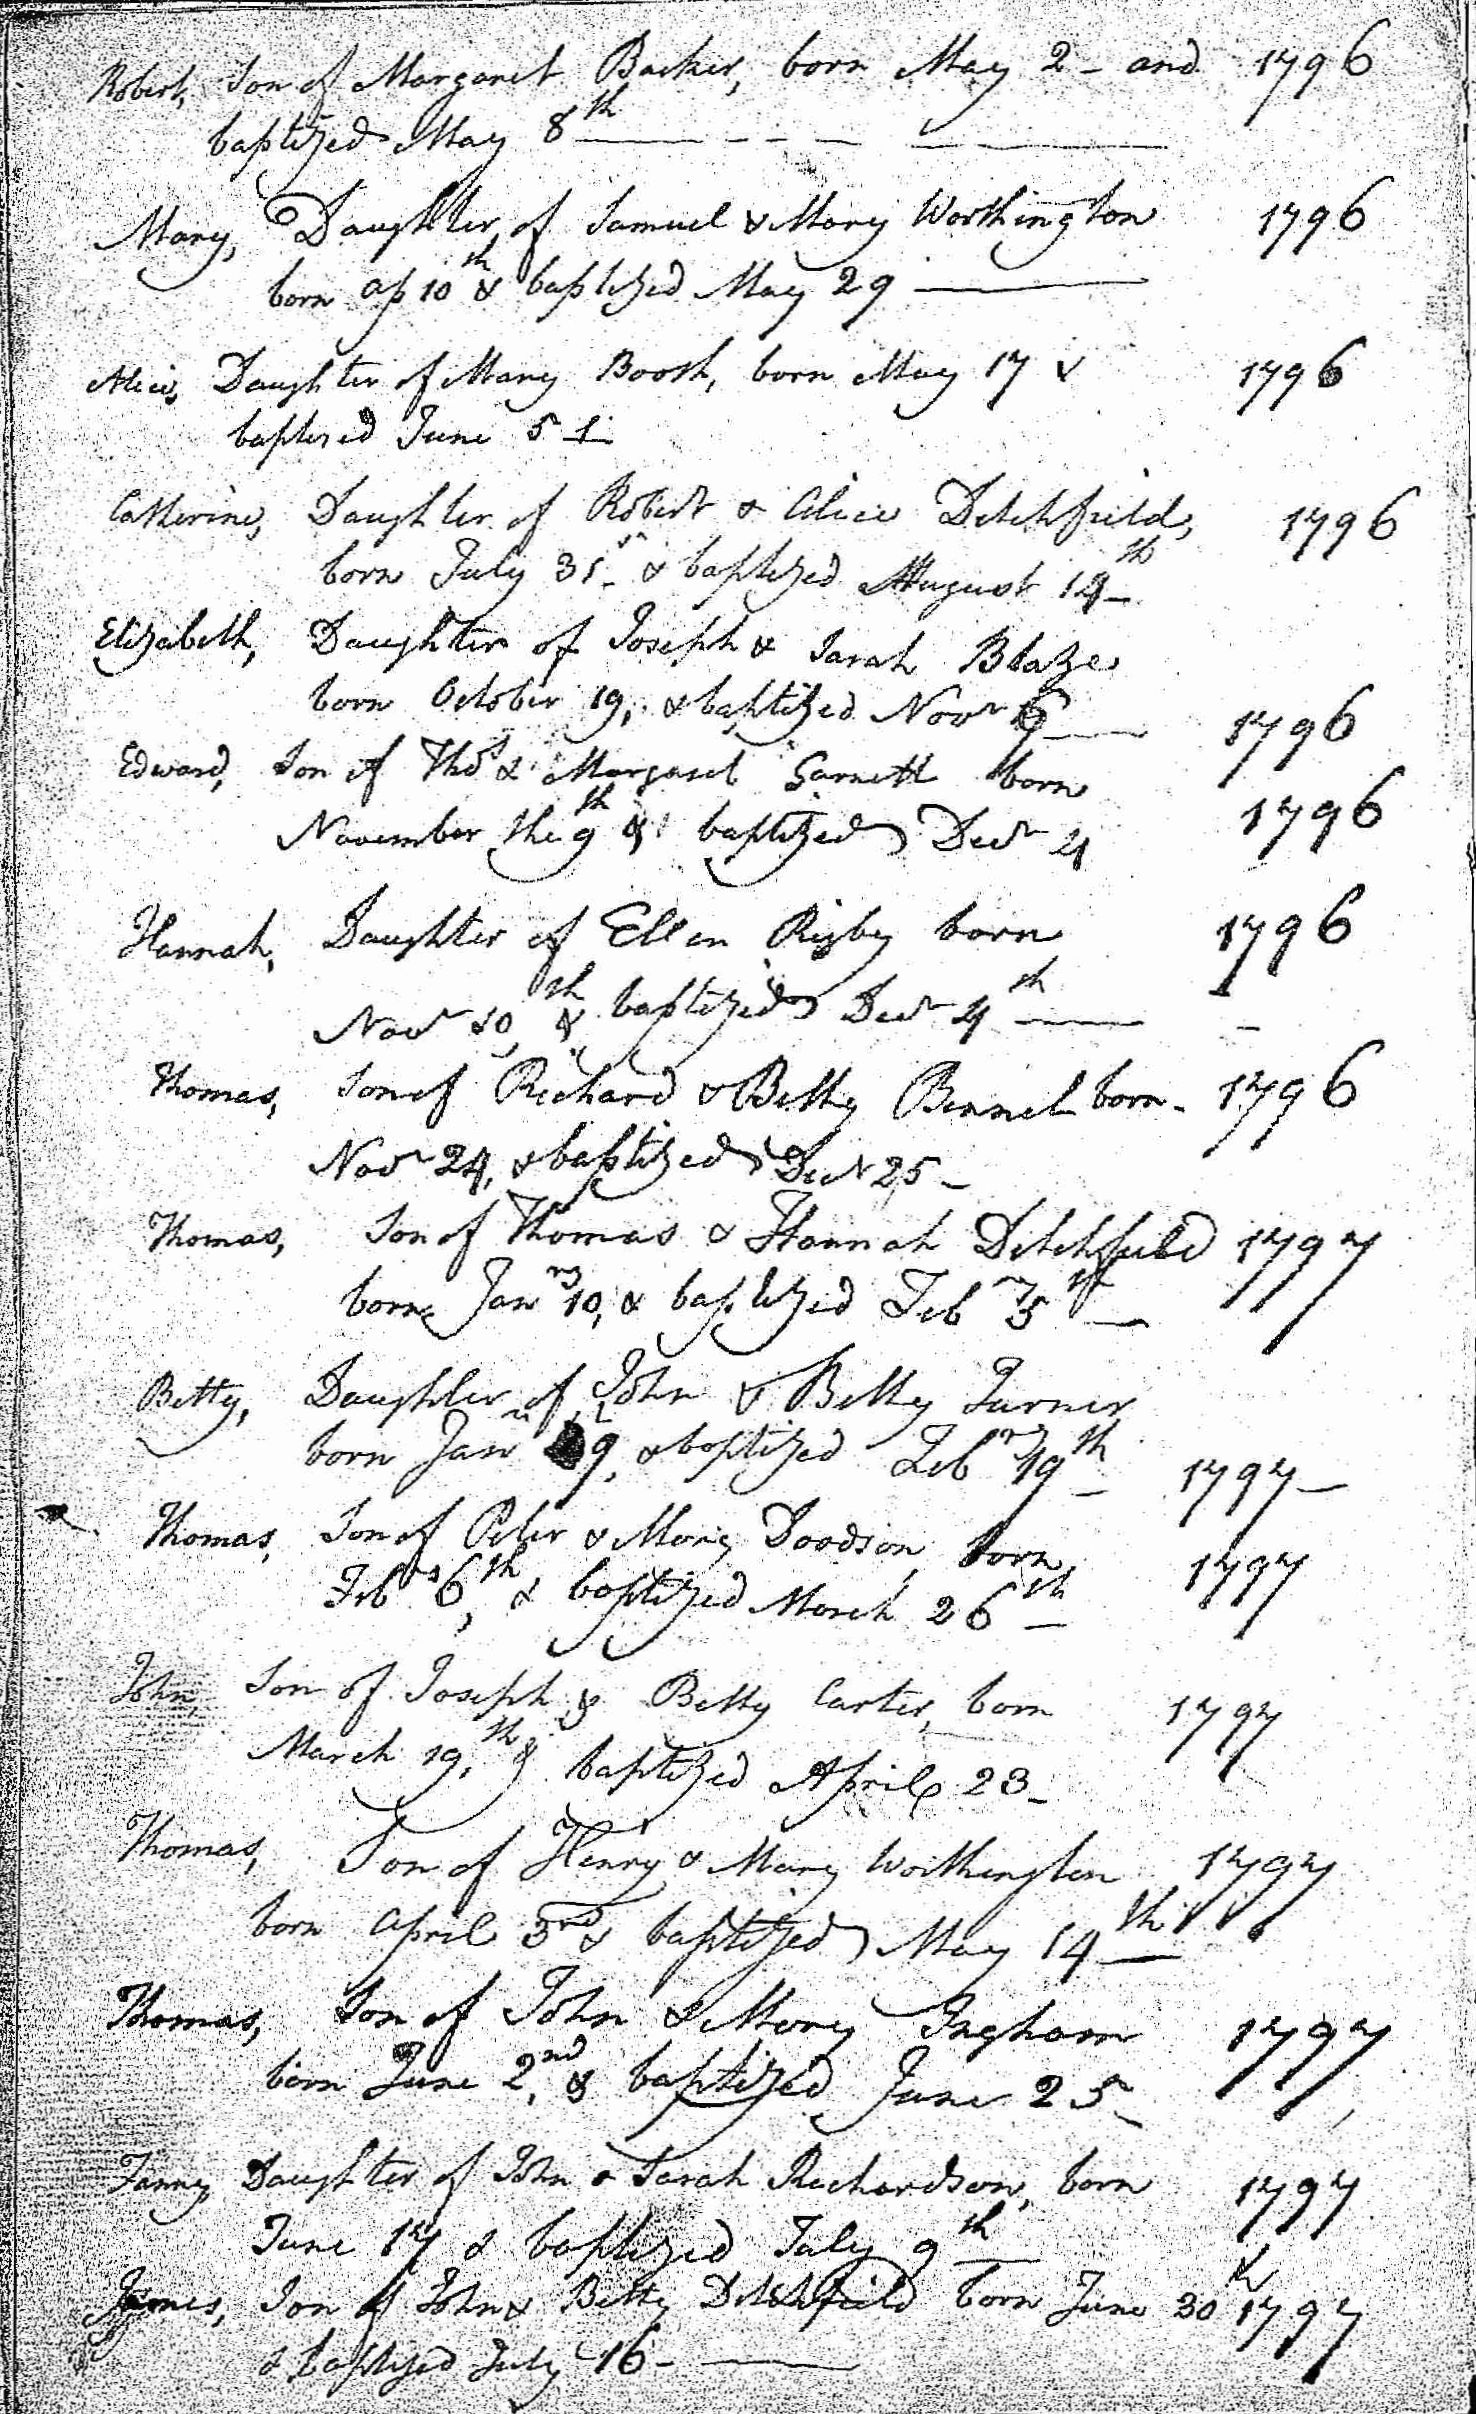 Robert, Son of Margaret Barker, born May 2 - and 1796
baptized May 8th
Mary, Daughter of Samuel & Mary Worthington 1796
born ap 10th & baptized May 29
Alice, Daughter of Mary Booth, born May 17 & 1796
baptized June 5
Catherine, Daughter of Robert & Alice Ditchfield, 1796
born July 31st & baptized August 14th
Elizabeth, Daughter of Joseph & Sarah Blaze
born October 19, & baptized Novr 1796
Edward, Son of Thos & Margaret Garnett born
November the 9th & baptized Decr 4 1796
Hannah, Daughter of Ellen Rigby born 1796
Novr 10th, & baptized Decr 4th
Thomas, Son of Richard & Betty Bennet born - 1796
Novr 24, & baptized Decr 25
Thomas, Son of Thomas & Hannah Ditchfield 1797
born Janry 10, & baptized Febry 5th
Betty, Daughter of John & Betty Turner
born Janry 9, & baptized Febry 19th 1797
Thomas, Son of Peter & Mary Doodson, born 1797
Feb 6th, & baptized March 26th
John, Son of Joseph & Betty Carter, born 1797
March 19,th & baptized April 23
Thomas, Son of Henry & Mary Worthington 1797
born April 3rd & baptized May 14th
Thomas, Son of John & Mary Ingham 1797
born June 2,nd & baptized June 25
Fanny Daughter of John & Sarah Richardson, born 1797
June 17 & baptized July 9th
James, Son of John & Betty Ditchfield born June 30th 1797
& baptized July 16